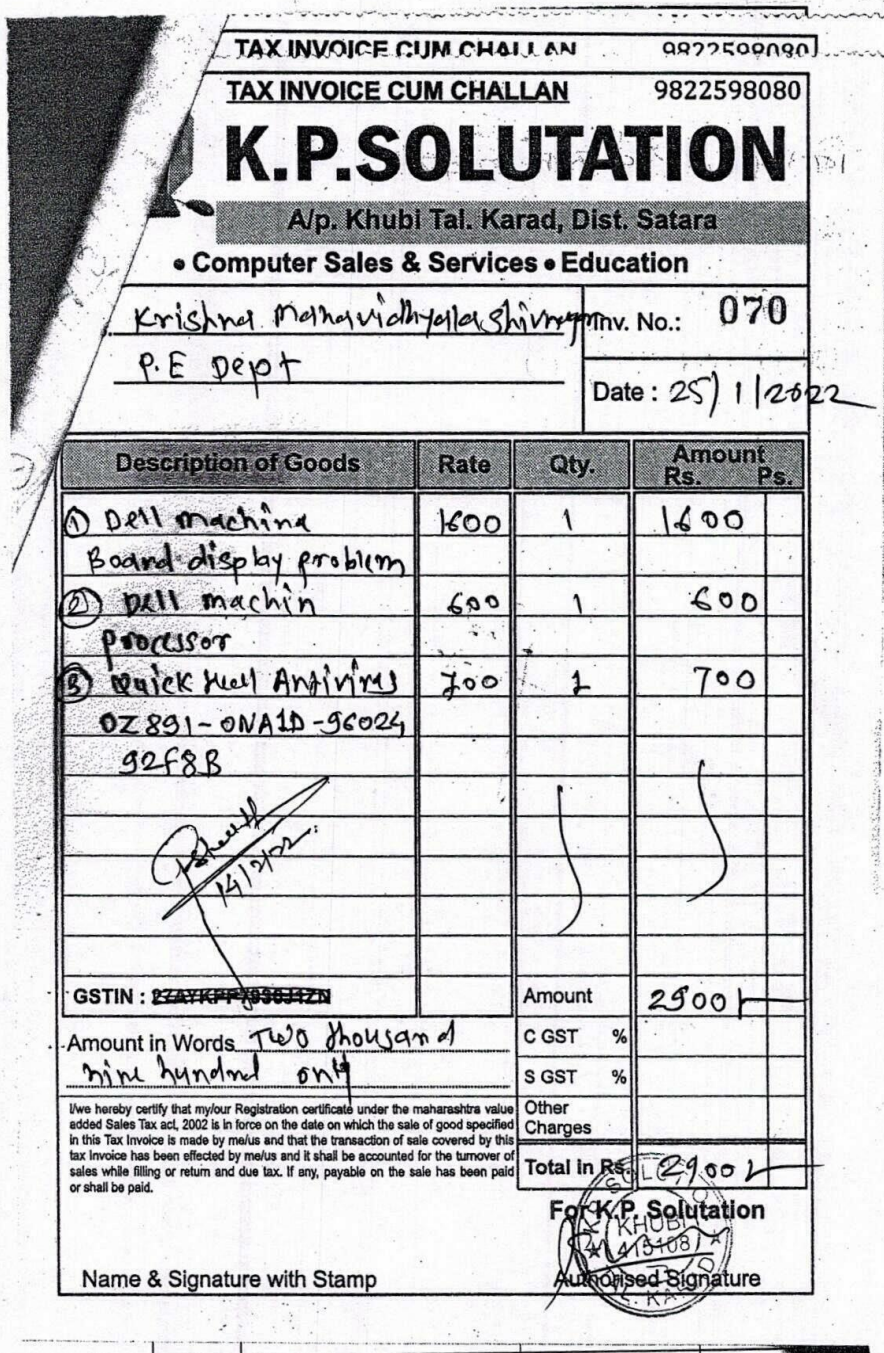 TAX INVOICE CUM CHALLAN 9822598080
TAX INVOICE CUM CHALLAN 9822598080
K.P.SOLUTATION
A/p. Khubi Tal. Karad, Dist. Satara
• Computer Sales & Services • Education
Krishna Mahavidhyala Shivnagar Inv. No.: 070
P.E Dept
Date : 25/1/2022
Description of Goods Rate Qty. Amount
Rs. Ps.
① Dell machina 1600 1 1600
Board display problem
② Dell machin 600 1 600
processor
③ Quick Heel Antivirus 700 1 700
OZ891-ONA1D-96024
92F8B
14/2/22
GSTIN : Amount 2900/-
Amount in Words Two thousand
nine hundred only
C GST %
S GST %
I/we hereby certify that my/our Registration certificate under the maharashtra value
added Sales Tax act, 2002 is in force on the date on which the sale of good specified
in this Tax Invoice is made by me/us and that the transaction of sale covered by this
tax Invoice has been effected by me/us and it shall be accounted for the turnover of
sales while filling or return and due tax. If any, payable on the sale has been paid
or shall be paid.
Other
Charges
Total In Rs. 2900/-
For K.P. Solutation
KHUBI
415108
Name & Signature with Stamp Authorised Signature